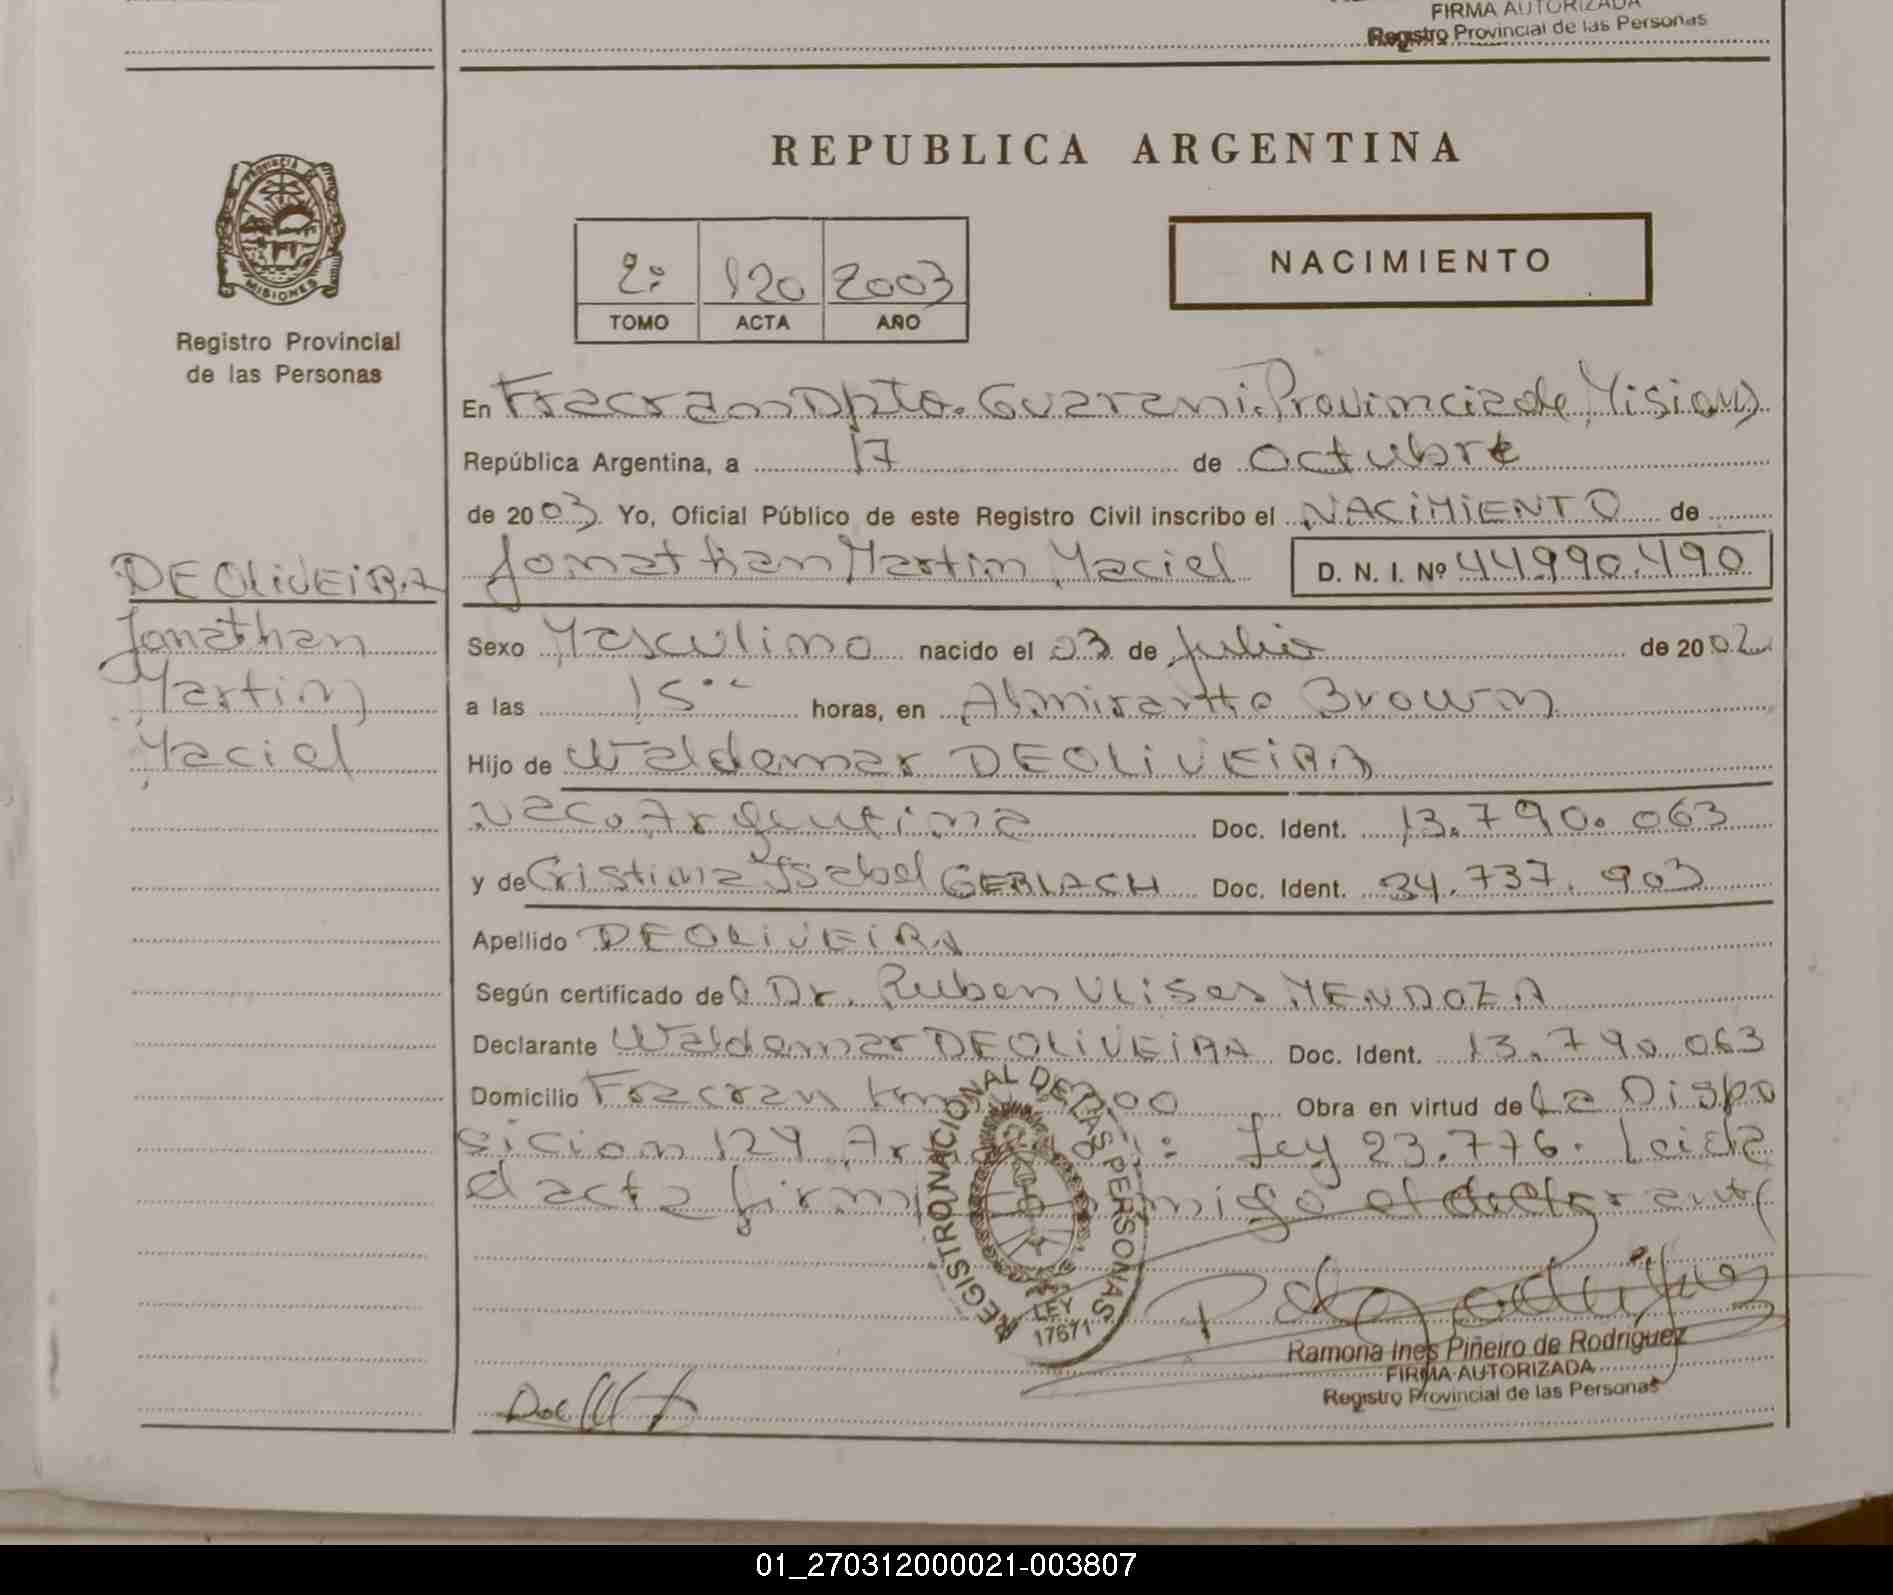 FIRMA AUTORIZADA
Registro Provincial de las Personas
REPUBLICA ARGENTINA
PROVINCIA DE
MISIONES
Registro Provincial
de las Personas
2º 120 2003
TOMO ACTA AÑO
NACIMIENTO
En Fracran Dpto. Guarani. Provincia de Misiones
República Argentina, a 17 de Octubre
de 2003 Yo, Oficial Público de este Registro Civil inscribo el NACIMIENTO de
Jonathan Martin Maciel D. N. I. Nº 44.990.490
DEOLIVEIRA
Jonathan
Martin
Maciel
Sexo Masculino nacido el 03 de Julio de 2002
a las 15 horas, en Almirantte Brown
Hijo de Waldemar DEOLIVEIRA
Nac. Argentina Doc. Ident. 13.790.063
y de Cristina Ysabel GERLACH Doc. Ident. 34.737.903
Apellido DEOLIVEIRA
Según certificado del Dr. Ruben Ulises MENDOZA
Declarante Waldemar DEOLIVEIRA Doc. Ident. 13.790.063
Domicilio Fracran Obra en virtud de La Dispo
sicion 124 Ley 23.776. Leida
el acta firma conmigo el declarante
REGISTRO NACIONAL DE LAS PERSONAS
LEY
17671
Ramona Ines Piñeiro de Rodriguez
FIRMA AUTORIZADA
Registro Provincial de las Personas
01_270312000021-003807